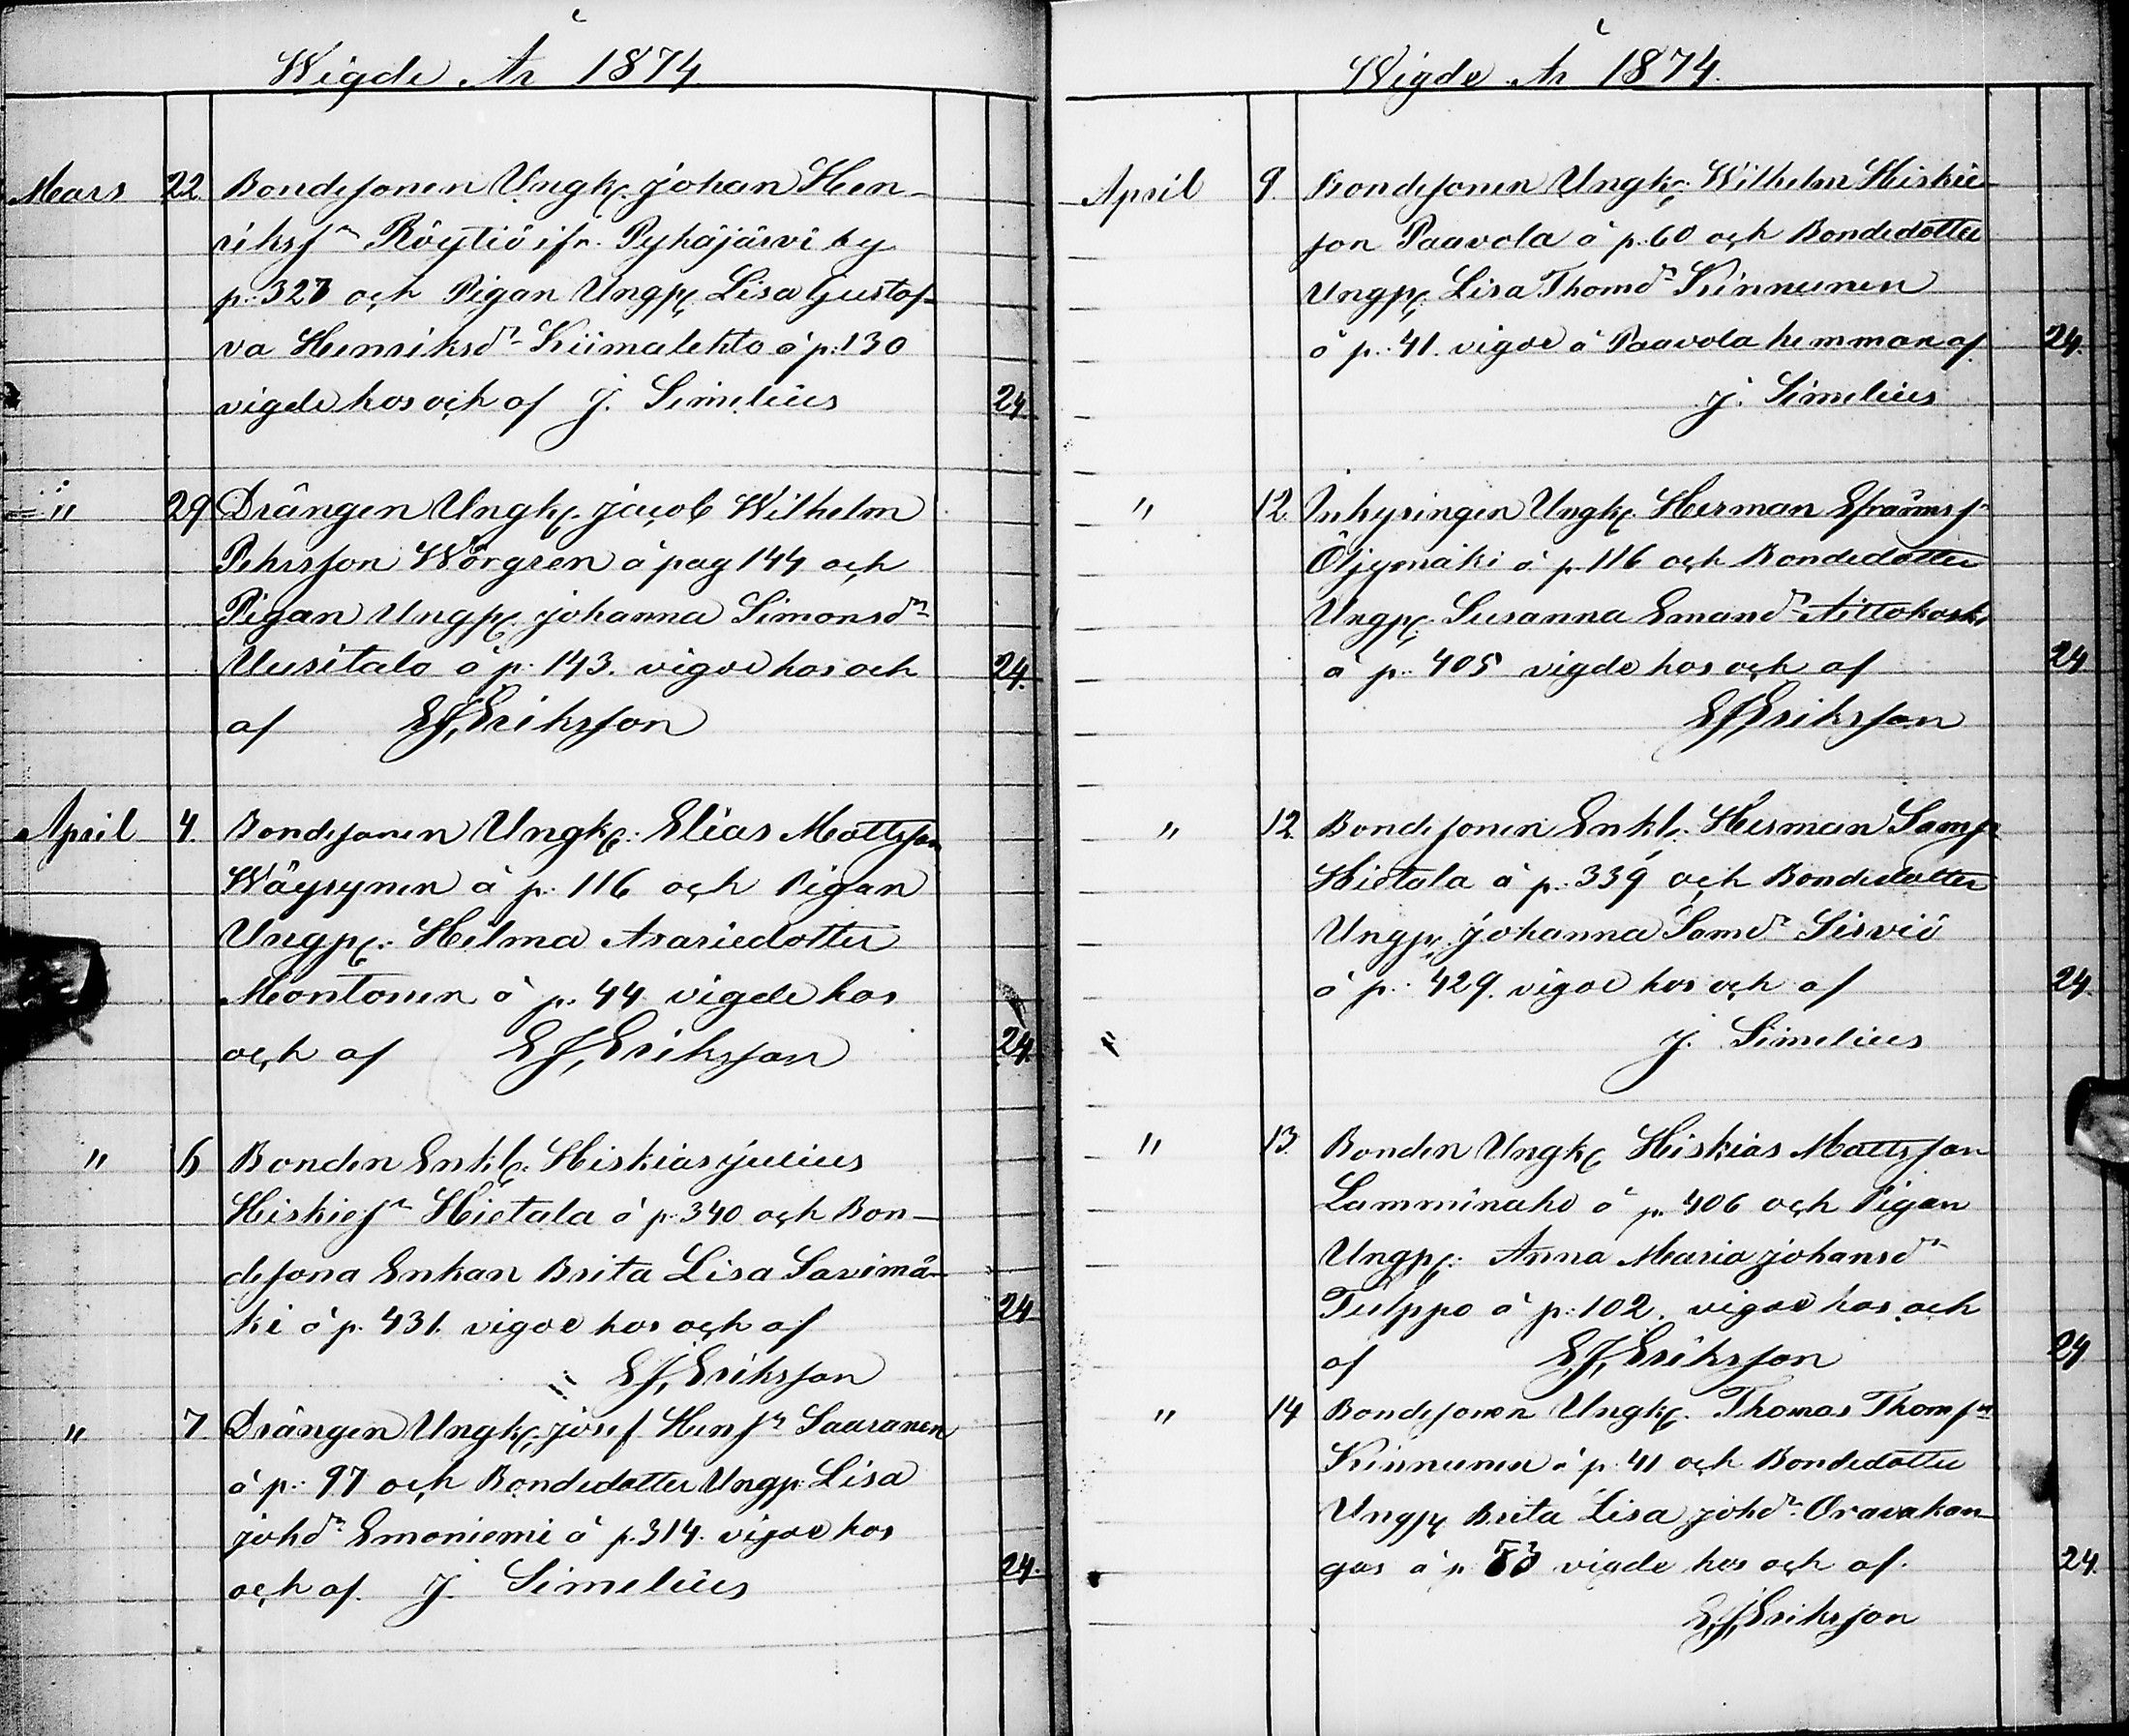 Wigde År 1874.
Mars 22. Bondesonen Ungk. Johan Hen-
riksn Röytiö ifr. Pyhäjärvi by
p: 327 och Pigan Ungp. Lisa Gustaf-
va Henriksdr Kiimalehto å p: 130
vigde hos och af J. Simelius 24
" 29 Drängen Ungk. Jacob Wilhelm
Pehrsson Wörgren å pag 144 och
Pigan Ungp. Johanna Simonsdr
Uusitalo å p: 143. vigde hos och 24.
af EJ, Eriksson
April 4. Bondesonen Ungk: Elias Mattsson
Wäyrynen å p: 116 och Pigan
Ungp: Helma Asariedotter
Montonen å p: 44 vigde hos
och af EJ, Eriksson 24.
" 6 Bonden Enkl: Hiskias Julius
Hiskiesn Hietala å p: 340 och Bon-
desona Enkan Brita Lisa Savimä-
ki å p. 431. vigde hos och af 24
EJ, Eriksson
" 7 Drängen Ungk. Josef Hensn Saaranen
å p: 97 och Bondedotter Ungp. Lisa
Johdr Emoniemi å p. 314. vigde hos
och af. J. Simelius 24.
Wigde År 1874.
April 9. Bondesonen Ungk: Wilhelm Hiskie-
son Paavola å p: 60 och Bondedotter
Ungp. Lisa Thomdr Kinnunen
å p: 41. vigde å Paavola hemman af 24.
J. Simelius
" 12. Inhysingen Ungk. Herman Efraimsn
Öljymäki å p. 116 och Bondedotter
Ungp. Susanna Emandr Aittokoski
å p: 405 vigde hos och af 24
EJ, Eriksson
" 12. Bondesonen Enkl: Herman Samsn
Hietala å p: 339 och Bondedotter
Ungp. Johanna Samdr Sirviö
å p: 429. vigde hos och af 24.
J. Simelius
" 13. Bonden Ungk. Hiskias Mattsson
Lamminaho å p. 406 och Pigan
Ungp: Anna Maria Johansdr
Tulppo å p: 102. vigde hos och
af EJ, Eriksson 24
" 14 Bondesonen Ungk. Thomas Thomsn
Kinnunen å p. 41 och Bondedotter
Ungp. Brita Lisa Johdr Oravakan-
gas å p. 53 vigde hos och af. 24.
E,J, Eriksson